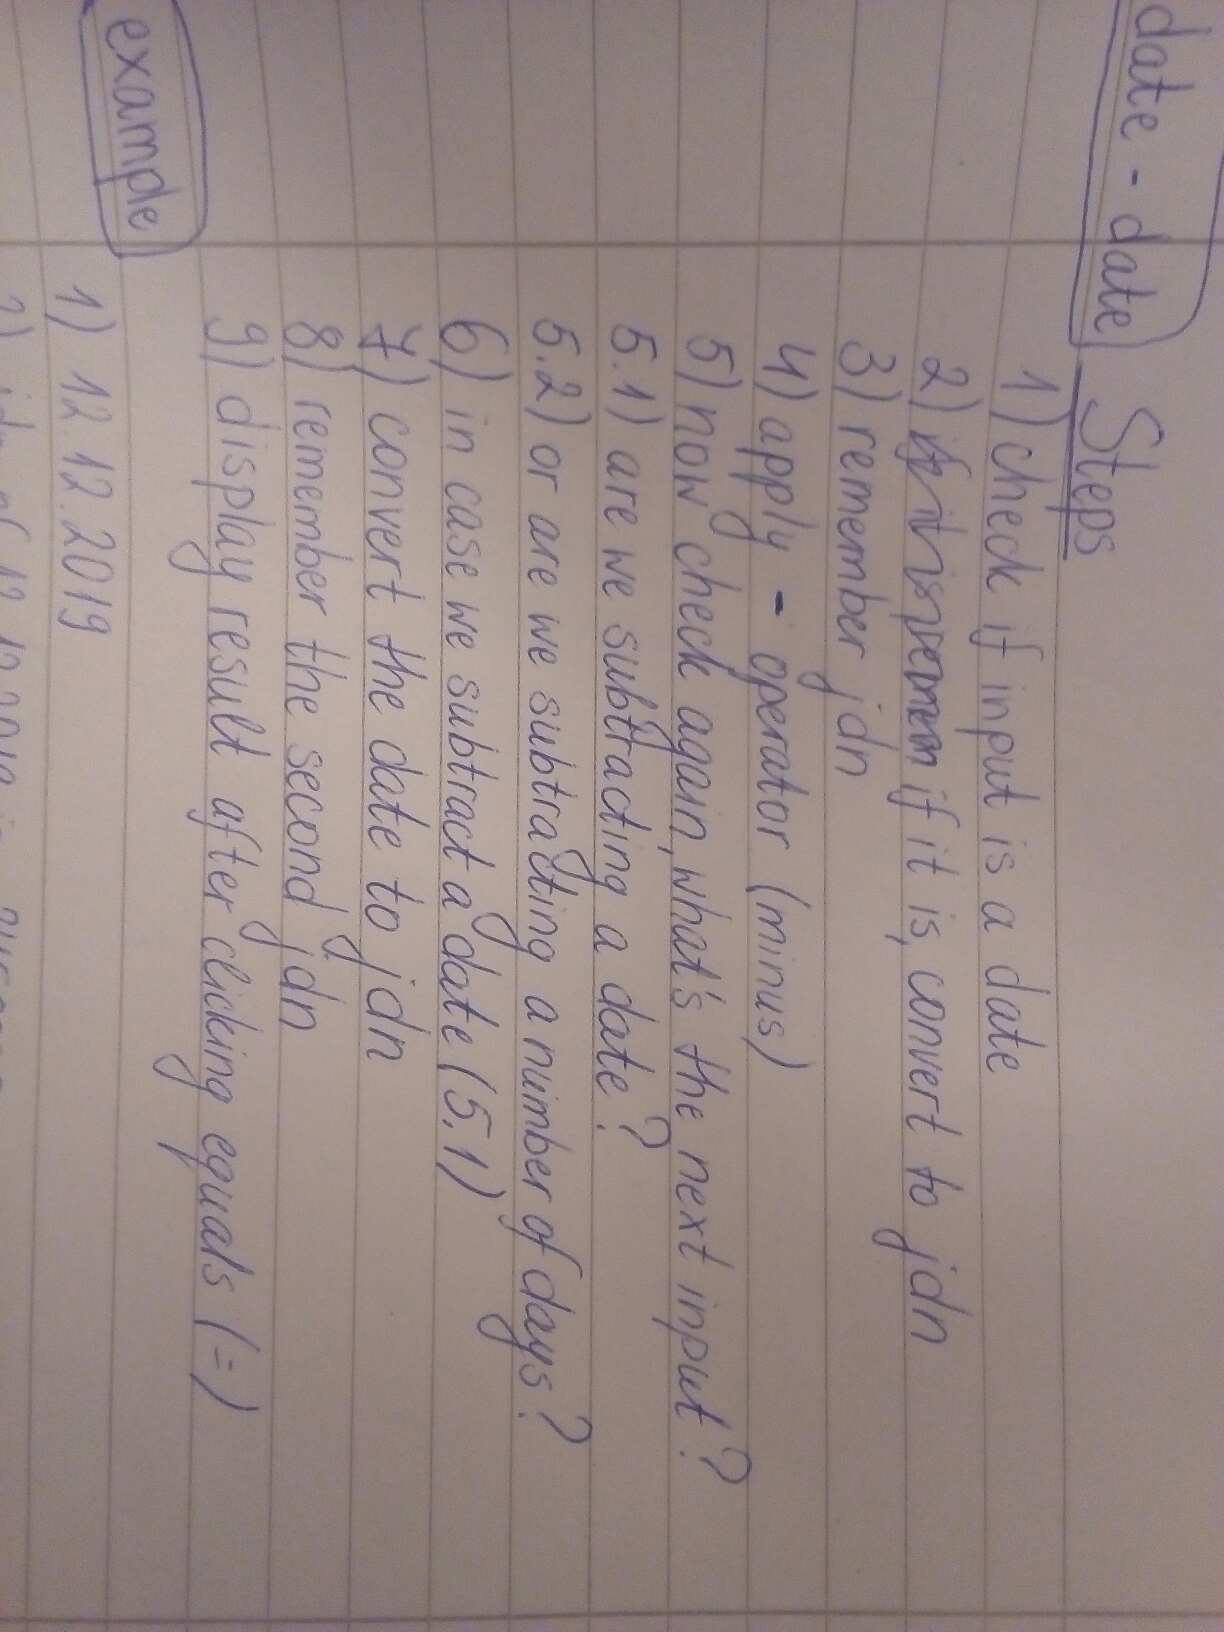 date - date Steps
1) check if input is a date
2) if it is, convert to jdn
3) remember jdn
4) apply - operator (minus)
5) now check again, what's the next input?
5.1) are we subtracting a date?
5.2) or are we subtracting a number of days?
6) in case we subtract a date (5.1)
7) convert the date to jdn
8) remember the second jdn
9) display result after clicking equals (=)
example
1) 12.12.2019
2) jdn of 12.12.2019